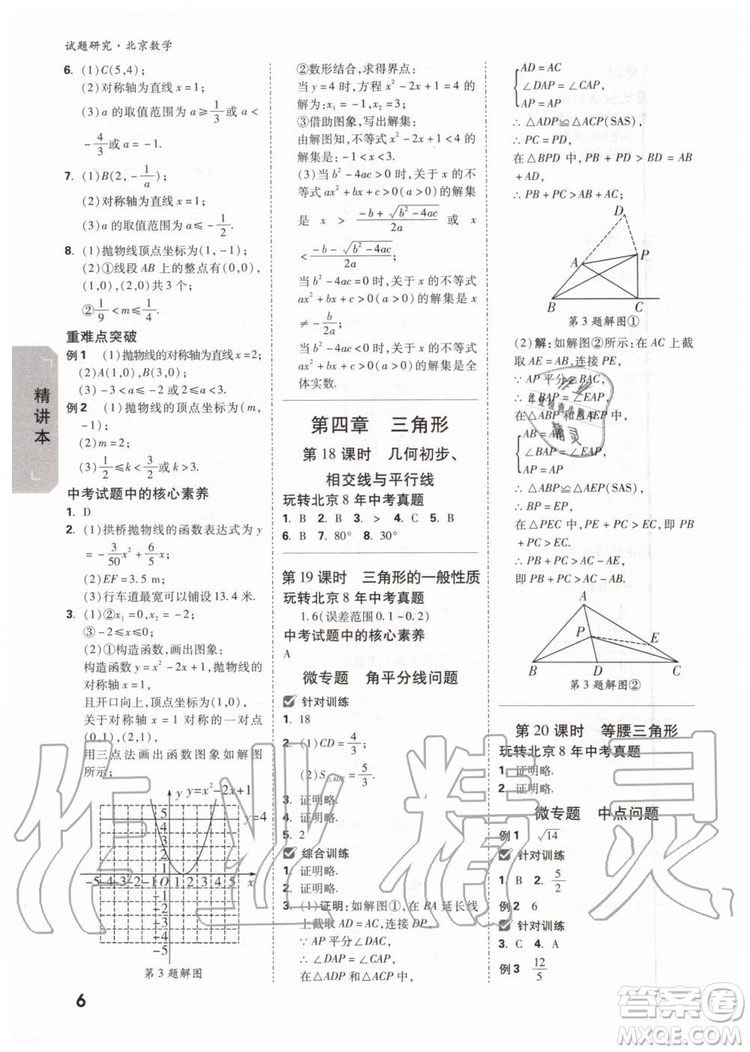 试题研究·北京数学
6. (1)C(5,4);
(2)对称轴为直线 x=1;
(3)a 的取值范围为 a≥1/3 或 a<
-4/3 或 a=-1.
7. (1)B(2,-1/a);
(2)对称轴为直线 x=1;
(3)a 的取值范围为 a≤-1/2.
8. (1)抛物线顶点坐标为(1,-1);
(2)①线段 AB 上的整点有(0,0),
(1,0),(2,0)共3个;
②1/9<m≤1/4.
重难点突破
例1 (1)抛物线的对称轴为直线 x=2;
(2)A(1,0),B(3,0);
例2 (1)抛物线的顶点坐标为(1,
-1);
(3)-1/2≤k<-1/4或1/4<k≤5/4.
中考试题中的核心素养
1. D
2. (1)拱桥抛物线的函数表达式为 y
=-3/50x²+6/5x;
(2)EF=3.5 m;
(3)行车道最宽可以铺设13.4米.
3. (1)②x₁=0,x₂=2;
③-2≤x≤0;
(2)①构造函数,画出图象:
构造函数 y=x²-2x+1,抛物线的
对称轴 x=1,
且开口向上,顶点坐标为(1,0),
关于对称轴 x=1对称的一对点
(0,1),(2,1),
用三点法画出函数图象如解图
所示:
y y=x²-2x+1
y=4
5
4
3
2
1
-5-4-3-2-1 0 1 2 3 4 5 x
-1
-2
-3
-4
-5
第3题解图
②数形结合,求得界点:
当 y=4时,方程 x²-2x+1=4的
解为:x₁=3,x₂=-1;
③借助图象,写出解集:
由解图知,不等式 x²-2x+1<4的
解集是:-1<x<3;
(3)当 b²-4ac>0时,关于 x 的不等
式 ax²+bx+c>0(a>0)的解集
是 x > (-b+√(b²-4ac))/2a 或 x
<(-b-√(b²-4ac))/2a.
当 b²-4ac=0时,关于 x 的不等式
ax²+bx+c>0(a>0)的解集是:x
≠-b/2a;
当 b²-4ac<0时,关于 x 的不等式
ax²+bx+c>0(a>0)的解集是全
体实数.
第四章 三角形
第18课时 几何初步、
相交线与平行线
玩转北京8年中考真题
1. B 2. B 3. > 4. A 5. B
6. B 7. 80° 8. 30°
第19课时 三角形的一般性质
玩转北京8年中考真题
1.6(误差范围0.1~0.2)
中考试题中的核心素养
A
微专题 角平分线问题
针对训练
1. 18
2. (1)CD=4/3;
(2)S△ADC=5/3.
3. 证明略.
4. 证明略.
5. 2
综合训练
1. 证明略. 2. 证明略.
3. (1)证明:如解图①,在 BA 延长线
上截取 AD=AC,连接 DP,
∵ AP 平分∠DAC,
∴ ∠DAP=∠CAP,
在△ADP 和△ACP 中,
AD=AC
∠DAP=∠CAP,
AP=AP
∴ △ADP≌△ACP(SAS),
∴ PC=PD,
在△BPD 中,PB+PD>BD=AB
+AD,
∴ PB+PC>AB+AC;
D
A
P
B
C
第3题解图①
(2)解:如解图②,在 AC 上截
取 AE=AB,连接 PE,
∵ AP 平分∠BAC,
∴ △ABP≌△AEP(SAS),
∴ BP=EP,
在△PEC 中,PE+EC>PC,即 PB
+EC>PC.
A
P
E
B
D
C
第3题解图②
第20课时 等腰三角形
玩转北京8年中考真题
1. 证明略.
2. 证明略.
微专题 中点问题
例1 √14
针对训练
1. B 2. 5/2
例2 6
针对训练
3. C 4. A
例3 12/5
精讲本
6
作业精灵
答案圈
MXQE.COM